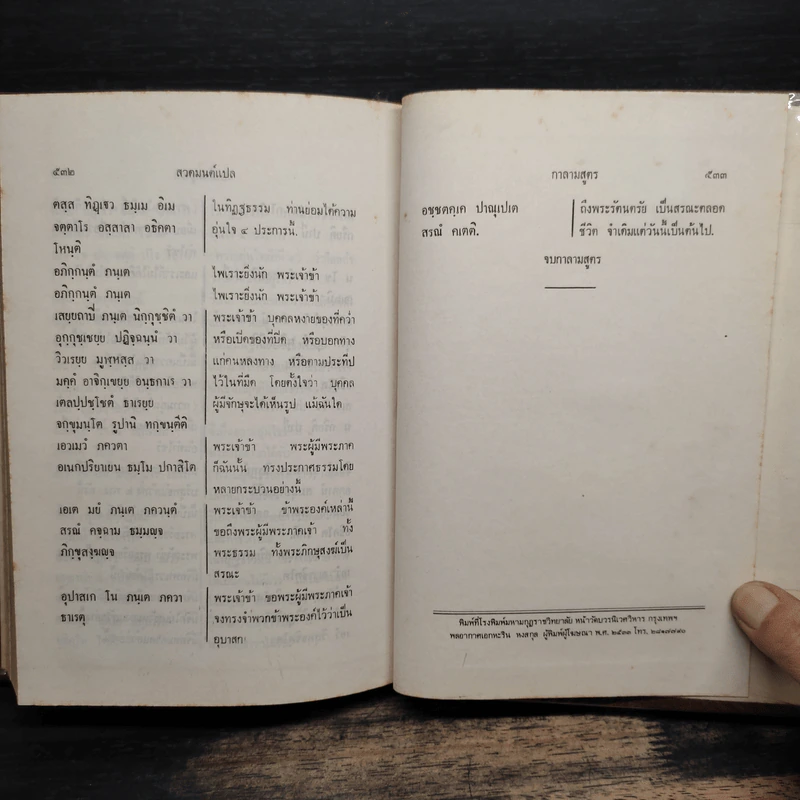 ๕๓๒ สวดมนต์แปล
ตสฺส ทิฏฺเฐว ธมฺเม อิเม
จตฺตาโร อสฺสาสา อธิคตา
โหนฺติ
ในทิฏฐธรรม ท่านย่อมได้ความ
อุ่นใจ ๔ ประการนี้.
อภิกฺกนฺตํ ภนฺเต
ไพเราะยิ่งนัก พระเจ้าข้า
อภิกฺกนฺตํ ภนฺเต
ไพเราะยิ่งนัก พระเจ้าข้า
เสยฺยถาปิ ภนฺเต นิกฺกุชฺชิตํ วา
อุกฺกุชฺเชยฺย ปฏิจฺฉนฺนํ วา
วิวเรยฺย มูฬฺหสฺส วา
มคฺคํ อาจิกฺเขยฺย อนฺธกาเร วา
เตลปฺปชฺโชตํ ธาเรยฺย
จกฺขุมนฺโต รูปานิ ทกฺขนฺตีติ
พระเจ้าข้า บุคคลหงายของที่คว่ำ
หรือเปิดของที่ปิด หรือบอกทาง
แก่คนหลงทาง หรือตามประทีป
ไว้ในที่มืด โดยตั้งใจว่า บุคคล
ผู้มีจักษุจะได้เห็นรูป แม้ฉันใด
เอวเมวํ ภควตา
อเนกปริยาเยน ธมฺโม ปกาสิโต
พระเจ้าข้า พระผู้มีพระภาค
ก็ฉันนั้น ทรงประกาศธรรมโดย
หลายกระบวนอย่างนี้
เอเต มยํ ภนฺเต ภควนฺตํ
สรณํ คจฺฉาม ธมฺมญฺจ
ภิกฺขุสงฺฆญฺจ
พระเจ้าข้า ข้าพระองค์เหล่านี้
ขอถึงพระผู้มีพระภาคเจ้า ทั้ง
พระธรรม ทั้งพระภิกษุสงฆ์เป็น
สรณะ
อุปาสเก โน ภนฺเต ภควา
ธาเรตุ
พระเจ้าข้า ขอพระผู้มีพระภาคเจ้า
จงทรงจำพวกข้าพระองค์ไว้ว่าเป็น
อุบาสก
กาลามสูตร ๕๓๓
อชฺชตคฺเค ปาณุเปเต
สรณํ คเตติ.
ถึงพระรัตนตรัย เป็นสรณะตลอด
ชีวิต จำเดิมแต่วันนี้เป็นต้นไป.
จบกาลามสูตร
พิมพ์ที่โรงพิมพ์มหามกุฏราชวิทยาลัย หน้าวัดบวรนิเวศวิหาร กรุงเทพฯ
พลอากาศเอกหะริน หงสกุล ผู้พิมพ์ผู้โฆษณา พ.ศ. ๒๕๓๓ โทร.